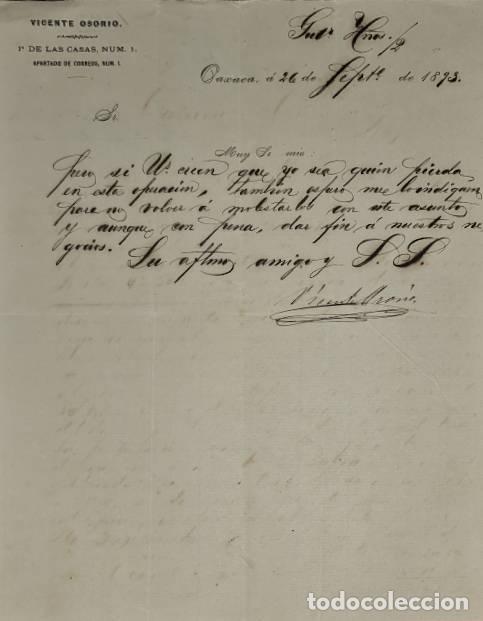 VICENTE OSORIO.
1ª DE LAS CASAS, NUM. 1.
APARTADO DE CORREOS, NUM. 1.
Hnos. /2
Oaxaca, á 26 de Septe. de 1893.
Sr.
Muy Sr. mio:
pero si Us. creen que yo sea quien pierda
en esta operacion, tambien espero me lo indiquen
para no volver á molestarlos con este asunto
y aunque con pena, dar fin á nuestros ne
gocios. Su aftmo amigo y S. S.
Vicente Osorio.
todocoleccion.net